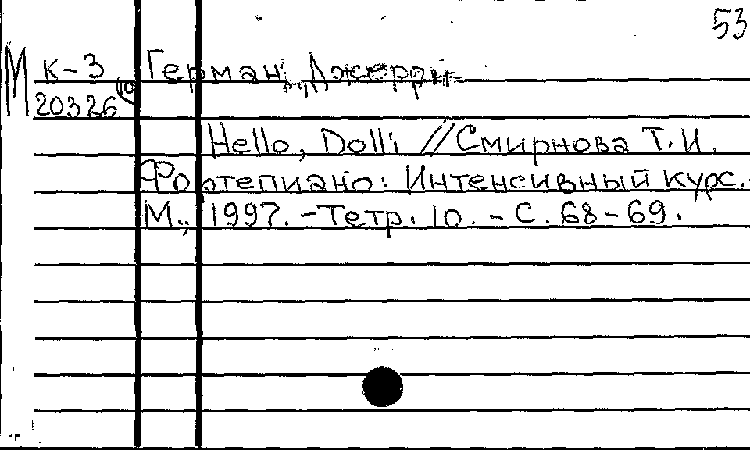 53
М к-3 Герман, Джерри
20326 (10)
Hello, Dolli // Смирнова Т.И.
Фортепиано: Интенсивный курс.-
М., 1997. - Тетр. 10. - С. 68-69.